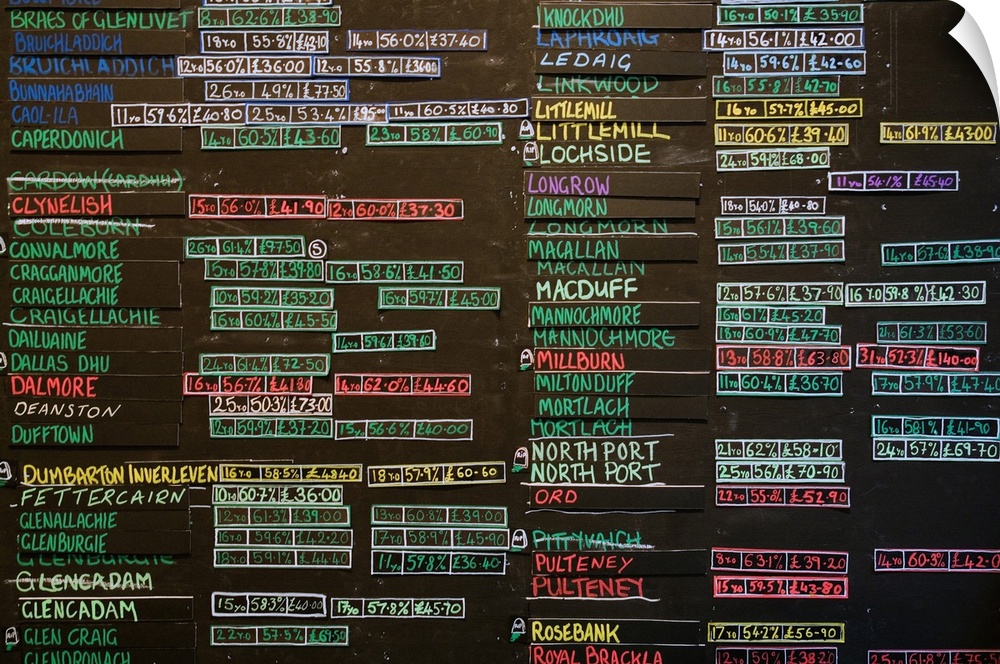 BRAES OF GLENLIVET 8YO 62.6% £38.90
BRUICHLADDICH 18YO 55.8% £42.10 14YO 56.0% £37.40
BRUICHLADDICH 12YO 56.0% £36.00 12YO 55.8% £36.00
BUNNAHABHAIN 26YO 49% £77.50
CAOL-ILA 11YO 59.6% £40.80 25YO 53.4% £95.00 11YO 60.5% £40.80
CAPERDONICH 14YO 60.5% £43.60 23YO 58% £60.90
CARDOW (CARDHU)
CLYNELISH 15YO 56.0% £41.90 12YO 60.0% £37.30
COLEBURN
CONVALMORE 26YO 61.4% £97.50 S
CRAGGANMORE 15YO 57.8% £39.80 16YO 58.6% £41.50
CRAIGELLACHIE 10YO 59.2% £35.20 16YO 59.7% £45.00
CRAIGELLACHIE 16YO 60.4% £45.50
DAILUAINE 14YO 59.6% £39.60
DALLAS DHU 24YO 61.4% £72.50
DALMORE 16YO 56.7% £41.80 14YO 62.0% £44.60
DEANSTON 25YO 50.3% £73.00
DUFFTOWN 12YO 59.9% £37.20 15YO 56.6% £40.00
DUMBARTON INVERLEVEN 16YO 58.5% £48.40 18YO 57.9% £60.60
FETTERCAIRN 10YO 60.7% £36.00
GLENALLACHIE 12YO 61.3% £39.00 13YO 60.8% £39.00
GLENBURGIE 16YO 59.6% £42.20 17YO 58.9% £45.90
GLENBURGIE 18YO 59.1% £44.40 11YO 57.8% £36.40
GLENCADAM
GLENCADAM 15YO 58.3% £40.00 17YO 57.8% £45.70
RIP GLEN CRAIG 22YO 57.5% £69.50
GLENDRONACH
KNOCKDHU 16YO 50.1% £35.90
LAPHROAIG 14YO 56.1% £42.00
LEDAIG 14YO 59.6% £42.60
LINKWOOD 16YO 55.8% £42.70
LITTLEMILL 16YO 57.7% £45.00
RIP LITTLEMILL 11YO 60.6% £39.40 14YO 61.9% £43.00
RIP LOCHSIDE 24YO 59.1% £68.00
LONGROW 11YO 54.1% £45.40
LONGMORN 18YO 54.0% £40.80
LONGMORN 15YO 56.1% £39.60
MACALLAN 14YO 55.4% £37.90 14YO 57.6% £38.90
MACALLAN
MACDUFF 12YO 57.6% £37.90 16YO 59.8% £42.30
MANNOCHMORE 16YO 61% £45.20
MANNOCHMORE 18YO 60.9% £47.70 21YO 61.3% £53.60
RIP MILLBURN 13YO 58.8% £63.80 31YO 52.3% £140.00
MILTONDUFF 11YO 60.4% £36.70 17YO 57.9% £47.40
MORTLACH
MORTLACH 16YO 58.1% £41.90
RIP NORTH PORT 21YO 62% £58.10 24YO 57% £69.70
NORTH PORT 25YO 56% £70.90
ORD 22YO 55.8% £52.90
RIP PITTYVAICH
PULTENEY 8YO 63.1% £39.20 14YO 60.3% £42.0
PULTENEY 15YO 59.5% £43.80
RIP ROSEBANK 17YO 54.2% £56.90
ROYAL BRACKLA 12YO 59% £38.20 25YO 61.8% £75.